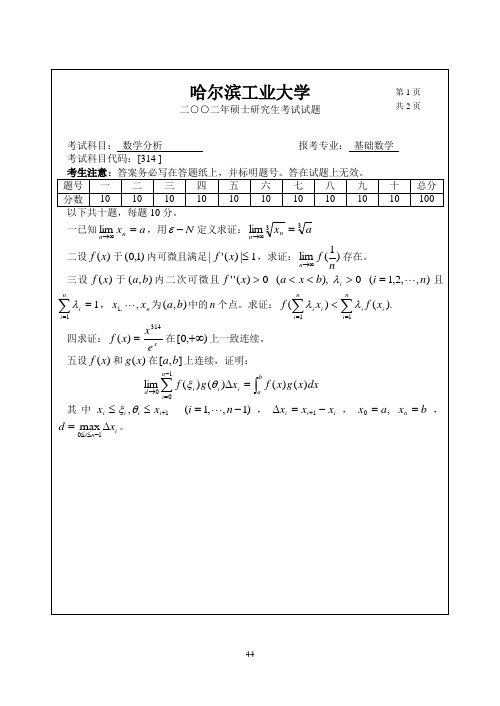 哈尔滨工业大学
第1页
二○○二年硕士研究生考试试题
共2页
考试科目： 数学分析 报考专业： 基础数学
考试科目代码：[314 ]
考生注意：答案务必写在答题纸上，并标明题号。答在试题上无效。
题号 一 二 三 四 五 六 七 八 九 十 总分
分数 10 10 10 10 10 10 10 10 10 10 100
以下共十题，每题10分。
一已知 lim_{n→∞} x_n = a，用 ε−N 定义求证：lim_{n→∞} ∛x_n = ∛a
二设 f(x) 于 (0,1) 内可微且满足 | f'(x) |≤ 1，求证：lim_{n→∞} f(1/n) 存在。
三设 f(x) 于 (a,b) 内二次可微且 f''(x) > 0 (a < x < b), λ_i > 0 (i = 1,2,⋯,n) 且
∑_{i=1}^{n} λ_i = 1， x_{1,} ⋯, x_n 为 (a,b) 中的 n 个点。求证： f(∑_{i=1}^{n} λ_i x_i) < ∑_{i=1}^{n} λ_i f(x_i).
四求证： f(x) = x^{314}/e^x 在 [0,+∞) 上一致连续。
五设 f(x) 和 g(x) 在 [a,b] 上连续，证明：
lim_{d→0} ∑_{i=0}^{n−1} f(ξ_i)g(θ_i)Δx_i = ∫_a^b f(x)g(x)dx
其中 x_i ≤ ξ_i, θ_i ≤ x_{i+1} (i = 1,⋯,n−1)， Δx_i = x_{i+1} − x_i， x_0 = a, x_n = b，
d = max_{0≤i≤n−1} Δx_i。
44